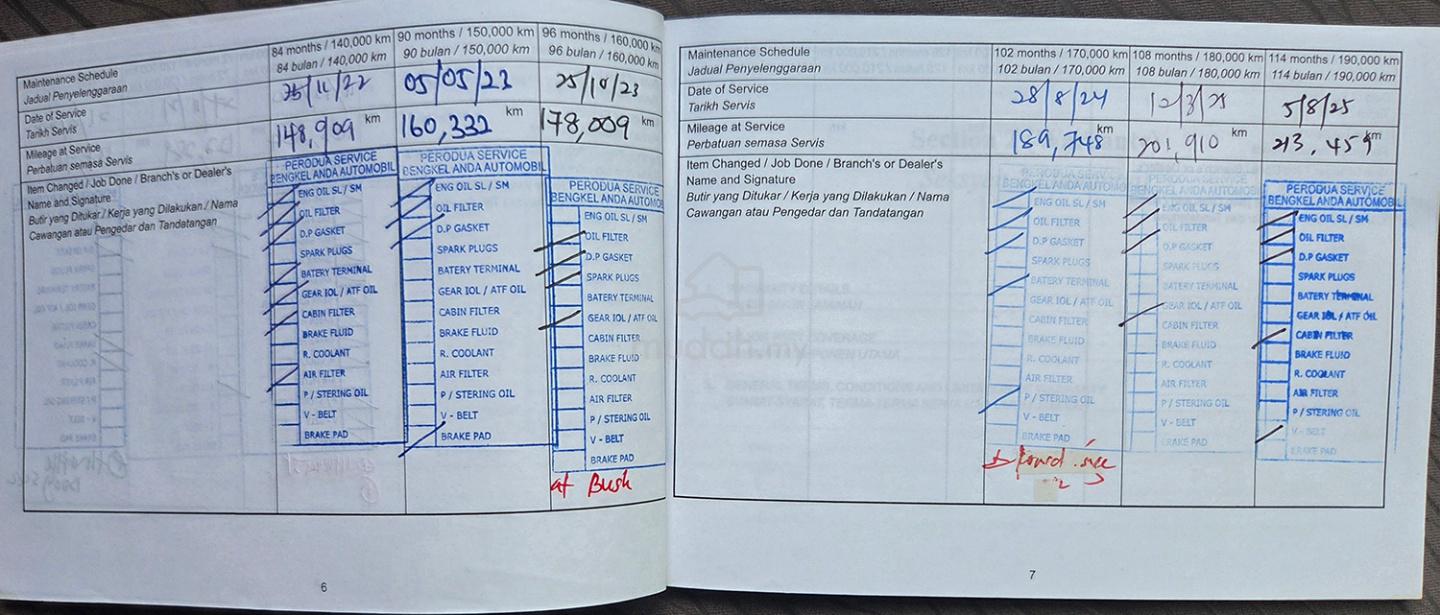 Maintenance Schedule
Jadual Penyelenggaraan
84 months / 140,000 km
84 bulan / 140,000 km
90 months / 150,000 km
90 bulan / 150,000 km
96 months / 160,000 km
96 bulan / 160,000 km
Date of Service
Tarikh Servis
25/11/22
05/05/23
25/10/23
Mileage at Service
Perbatuan semasa Servis
148,909 km
160,332 km
178,009 km
Item Changed / Job Done / Branch's or Dealer's
Name and Signature
Butir yang Ditukar / Kerja yang Dilakukan / Nama
Cawangan atau Pengedar dan Tandatangan
PERODUA SERVICE
BENGKEL ANDA AUTOMOBIL
ENG OIL SL / SM
OIL FILTER
D.P GASKET
SPARK PLUGS
BATERY TERMINAL
GEAR IOL / ATF OIL
CABIN FILTER
BRAKE FLUID
R. COOLANT
AIR FILTER
P / STERING OIL
V - BELT
BRAKE PAD
PERODUA SERVICE
BENGKEL ANDA AUTOMOBIL
ENG OIL SL / SM
OIL FILTER
D.P GASKET
SPARK PLUGS
BATERY TERMINAL
GEAR IOL / ATF OIL
CABIN FILTER
BRAKE FLUID
R. COOLANT
AIR FILTER
P / STERING OIL
V - BELT
BRAKE PAD
PERODUA SERVICE
BENGKEL ANDA AUTOMO
ENG OIL SL / SM
OIL FILTER
D.P GASKET
SPARK PLUGS
BATERY TERMINAL
GEAR IOL / ATF OIL
CABIN FILTER
BRAKE FLUID
R. COOLANT
AIR FILTER
P / STERING OIL
V - BELT
BRAKE PAD
at Bush
6
Maintenance Schedule
Jadual Penyelenggaraan
102 months / 170,000 km
102 bulan / 170,000 km
108 months / 180,000 km
108 bulan / 180,000 km
114 months / 190,000 km
114 bulan / 190,000 km
Date of Service
Tarikh Servis
28/8/24
12/3/25
5/8/25
Mileage at Service
Perbatuan semasa Servis
189,748 km
201,910 km
213,459 km
Item Changed / Job Done / Branch's or Dealer's
Name and Signature
Butir yang Ditukar / Kerja yang Dilakukan / Nama
Cawangan atau Pengedar dan Tandatangan
PERODUA SERVICE
BENGKEL ANDA AUTOMO
ENG OIL SL / SM
OIL FILTER
D.P GASKET
SPARK PLUGS
BATERY TERMINAL
GEAR IOL / ATF OIL
CABIN FILTER
BRAKE FLUID
R. COOLANT
AIR FILTER
P / STERING OIL
V - BELT
BRAKE PAD
PERODUA SERVICE
BENGKEL ANDA AUTOMOBIL
ENG OIL SL / SM
OIL FILTER
D.P GASKET
SPARK PLUGS
BATERY TERMINAL
GEAR IOL / ATF OIL
CABIN FILTER
BRAKE FLUID
R. COOLANT
AIR FILTER
P / STERING OIL
V - BELT
BRAKE PAD
PERODUA SERVICE
BENGKEL ANDA AUTOMOBIL
ENG OIL SL / SM
OIL FILTER
D.P GASKET
SPARK PLUGS
BATERY TERMINAL
GEAR IOL / ATF OIL
CABIN FILTER
BRAKE FLUID
R. COOLANT
AIR FILTER
P / STERING OIL
V - BELT
BRAKE PAD
7
mudah.my